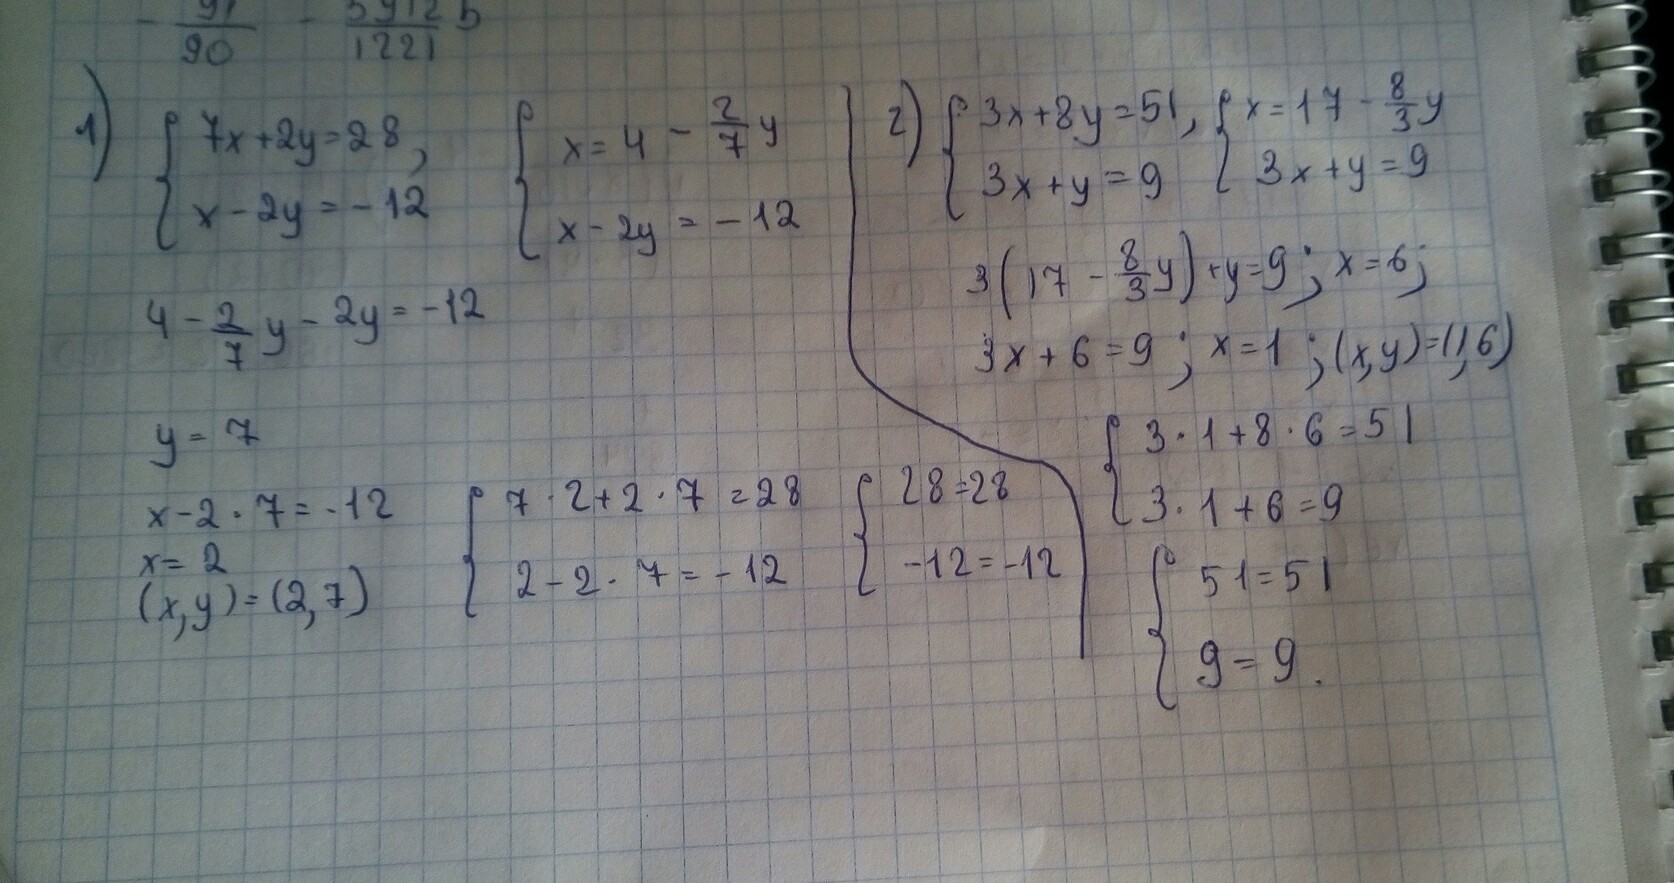 90
1221
1) { 7x+2y=28, x-2y=-12 { x=4-2/7y x-2y=-12
4-2/7y-2y=-12
y=7
x-2·7=-12
x=2
(x,y)=(2,7)
{ 7·2+2·7=28 2-2·7=-12 { 28=28 -12=-12
2) { 3x+8y=51, 3x+y=9 { x=17-8/3y 3x+y=9
3(17-8/3y)+y=9; x=6;
3x+6=9; x=1; (x,y)=(1,6)
{ 3·1+8·6=51 3·1+6=9
{ 51=51 9=9.